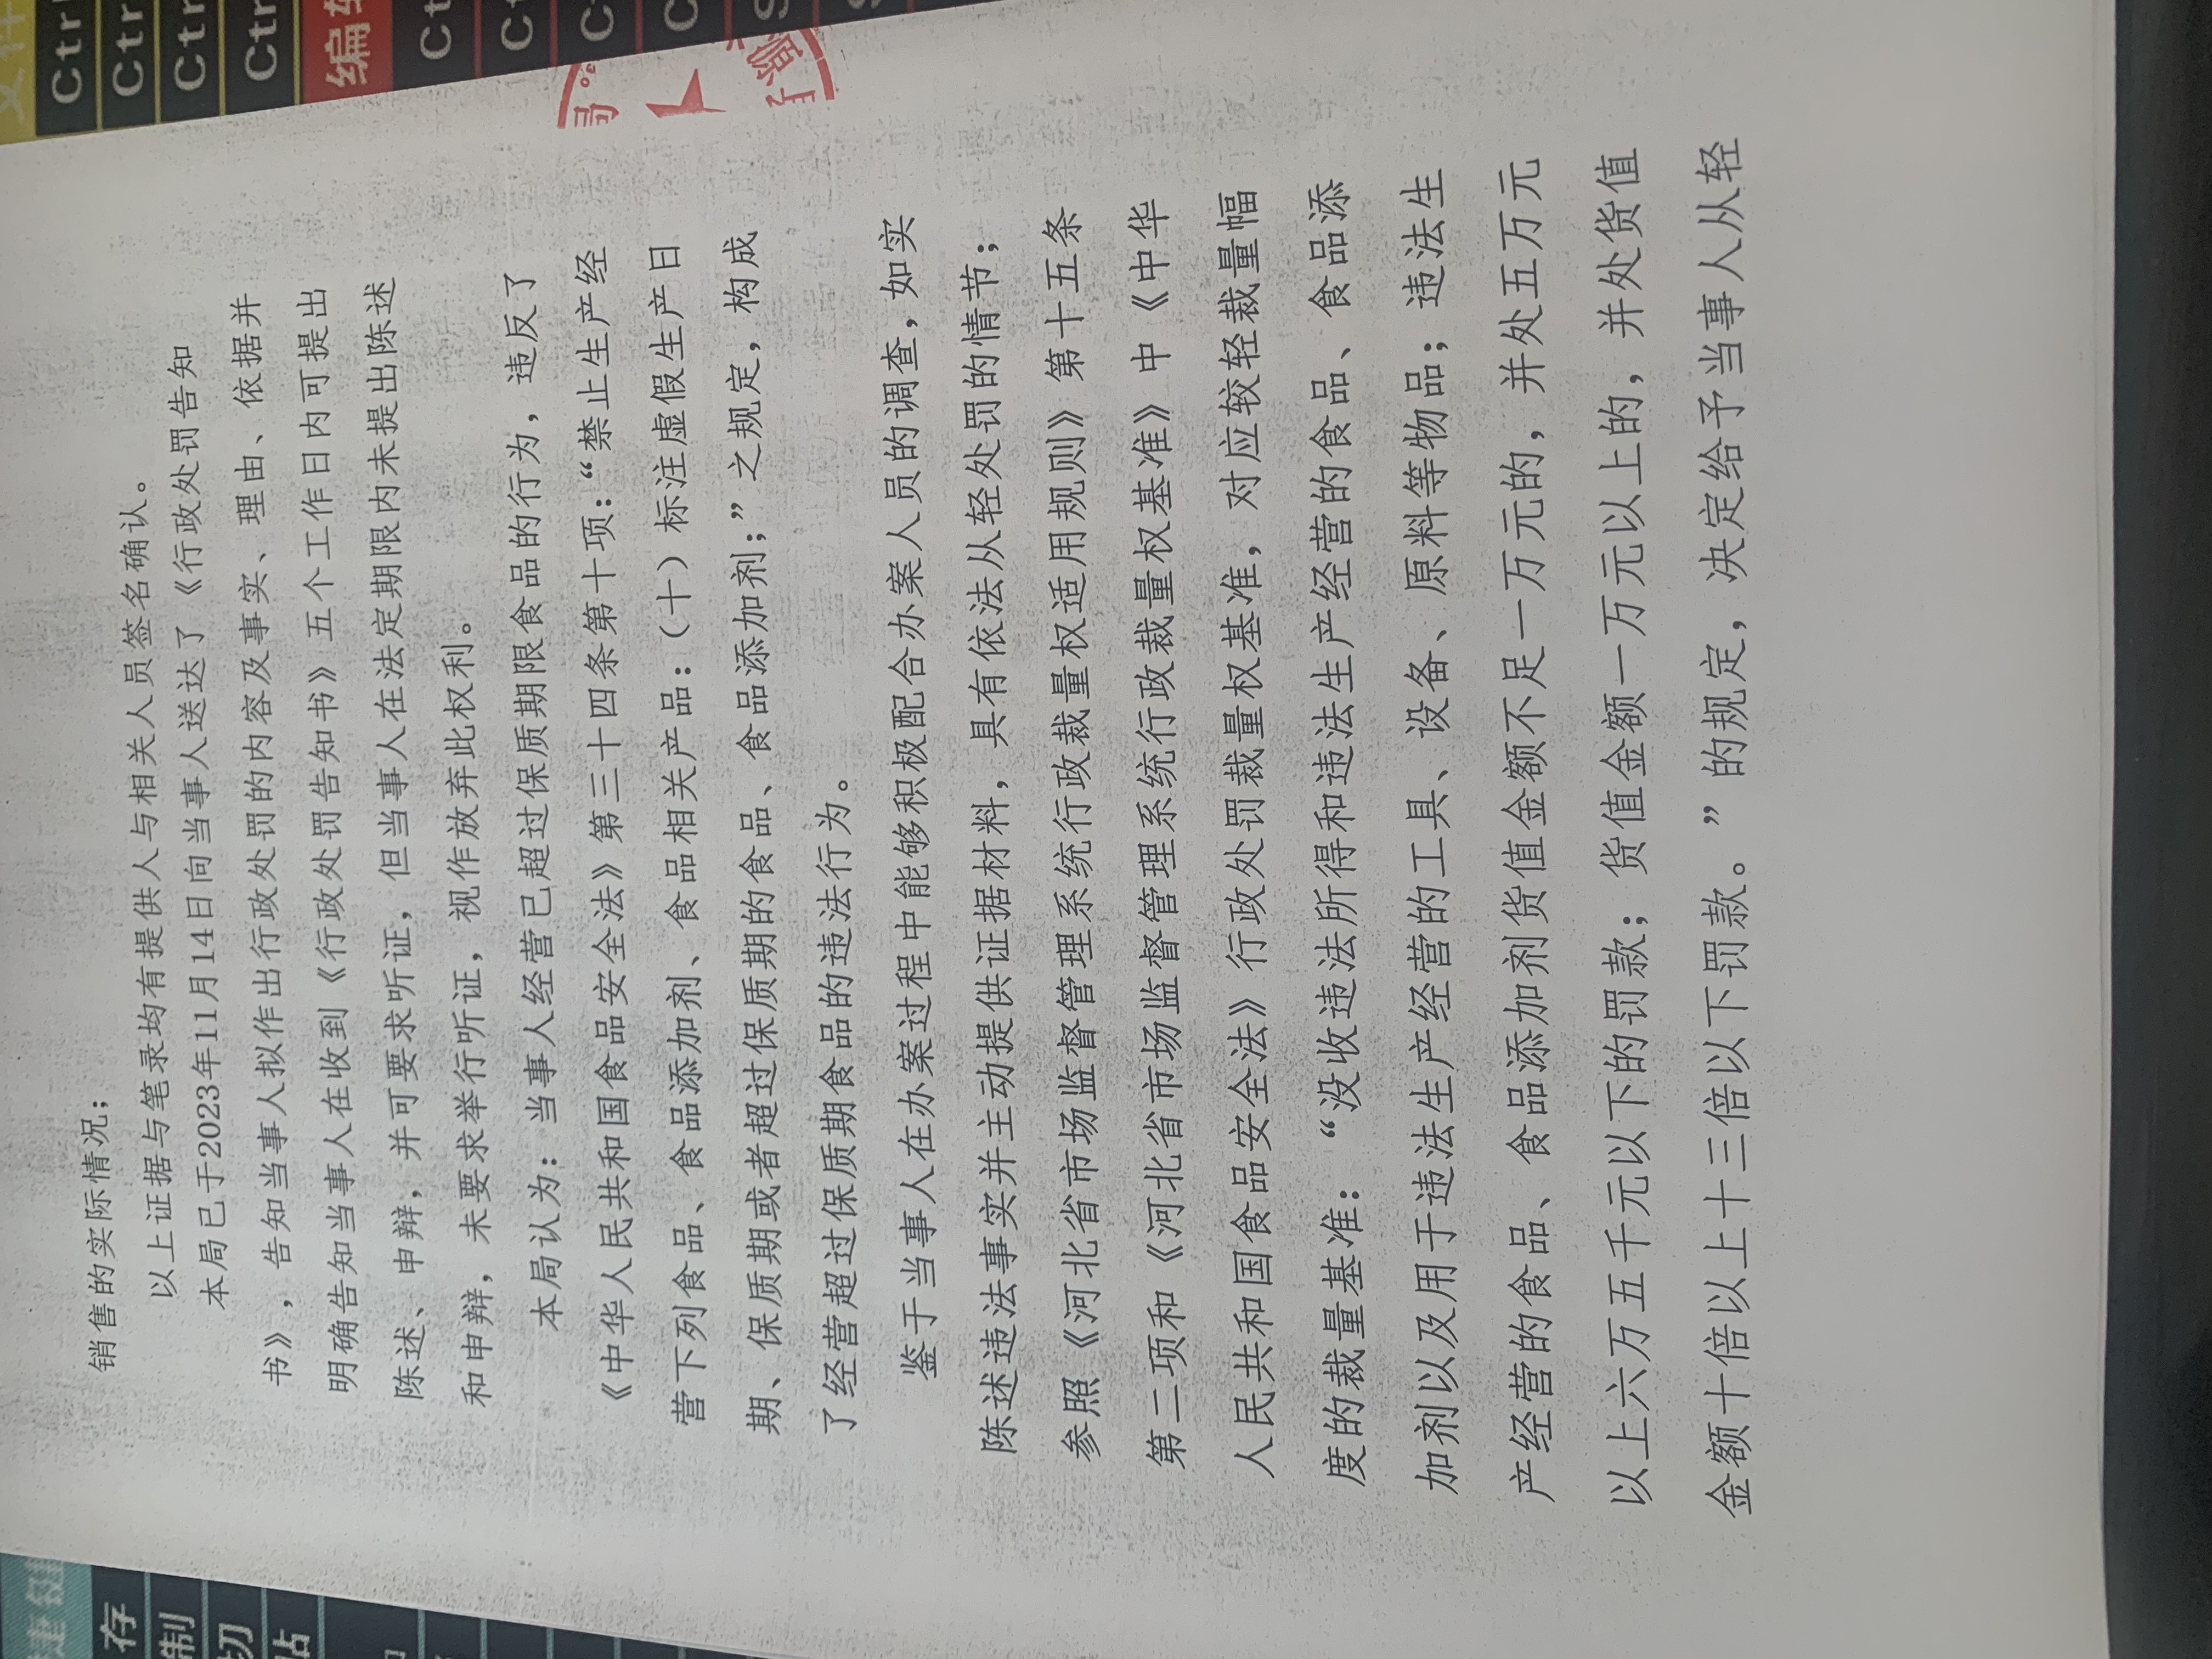 销售的实际情况；
以上证据与笔录均有提供人与相关人员签名确认。
本局已于2023年11月14日向当事人送达了《行政处罚告知
书》，告知当事人拟作出行政处罚的内容及事实、理由、依据并
明确告知当事人在收到《行政处罚告知书》五个工作日内可提出
陈述、申辩，并可要求听证，但当事人在法定期限内未提出陈述
和申辩，未要求举行听证，视作放弃此权利。
本局认为：当事人经营已超过保质期限食品的行为，违反了
《中华人民共和国食品安全法》第三十四条第十项：“禁止生产经
营下列食品、食品添加剂、食品相关产品：（十）标注虚假生产日
期、保质期或者超过保质期的食品、食品添加剂；”之规定，构成
了经营超过保质期食品的违法行为。
鉴于当事人在办案过程中能够积极配合办案人员的调查，如实
陈述违法事实并主动提供证据材料，具有依法从轻处罚的情节；
参照《河北省市场监督管理系统行政裁量权适用规则》第十五条
第二项和《河北省市场监督管理系统行政裁量权基准》中《中华
人民共和国食品安全法》行政处罚裁量权基准，对应较轻裁量幅
度的裁量基准：“没收违法所得和违法生产经营的食品、食品添
加剂以及用于违法生产经营的工具、设备、原料等物品；违法生
产经营的食品、食品添加剂货值金额不足一万元的，并处五万元
以上六万五千元以下的罚款；货值金额一万元以上的，并处货值
金额十倍以上十三倍以下罚款。”的规定，决定给予当事人从轻
Ctrl
Ctr
Ctr
Ctr
编辑
Ct
Ct
存
制
切
贴
捷键